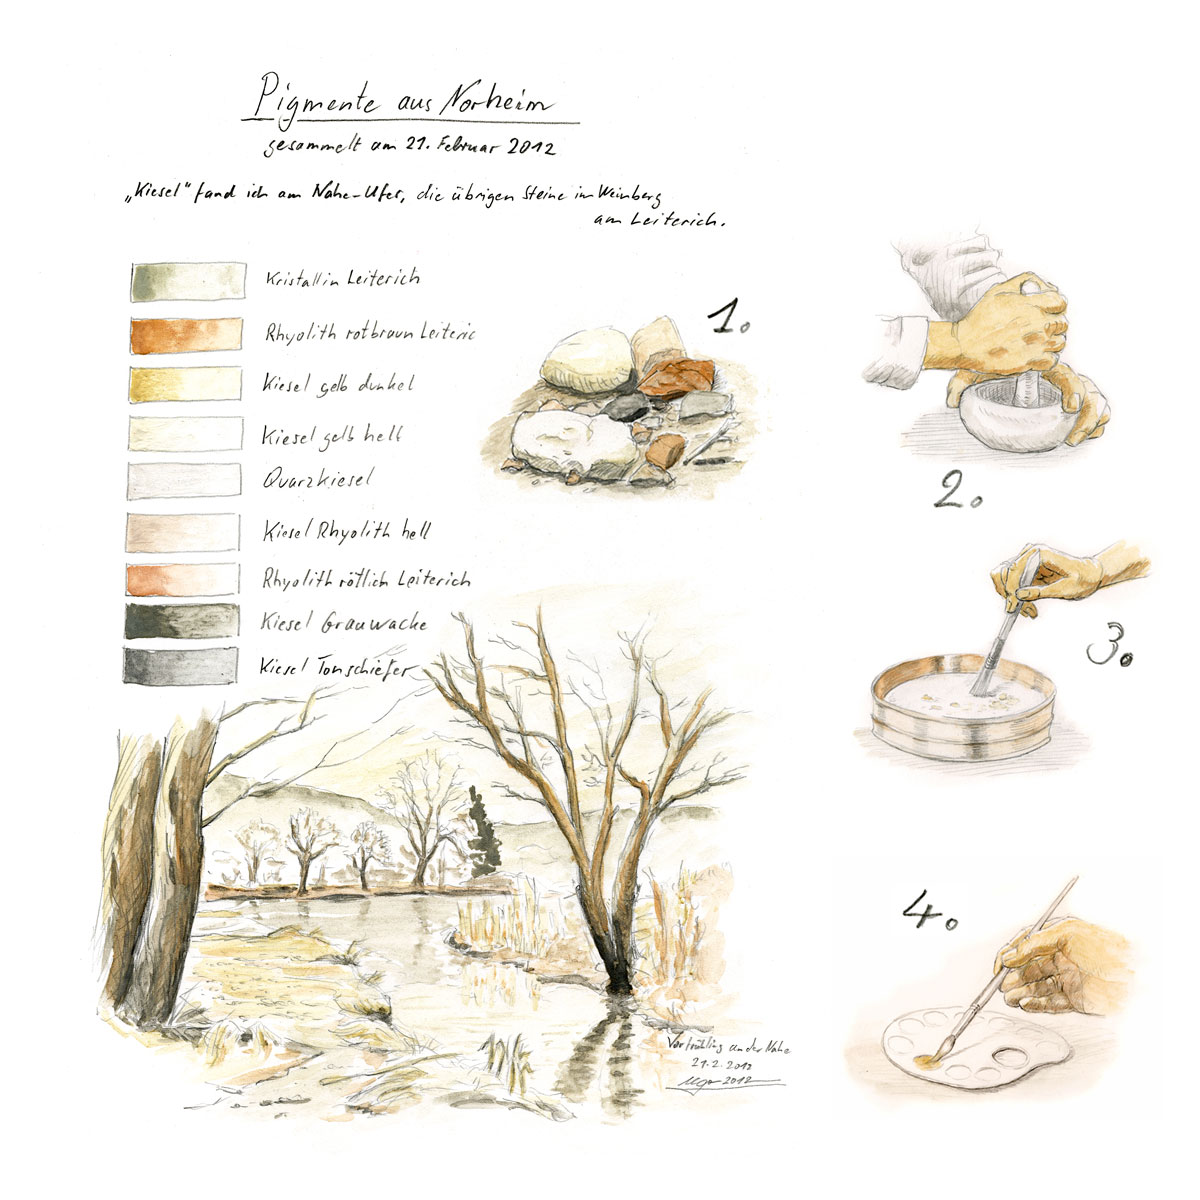 Pigmente aus Norheim
gesammelt am 21. Februar 2012
„Kiesel" fand ich am Nahe-Ufer, die übrigen Steine im Weinberg
am Leiterich.
Kristallin Leiterich
Rhyolith rotbraun Leiteric
Kiesel gelb dunkel
Kiesel gelb hell
Quarzkiesel
Kiesel Rhyolith hell
Rhyolith rötlich Leiterich
Kiesel Grauwacke
Kiesel Tonschiefer
1.
2.
3.
4.
Vorfrühling an der Nahe
21.2.2012
2012